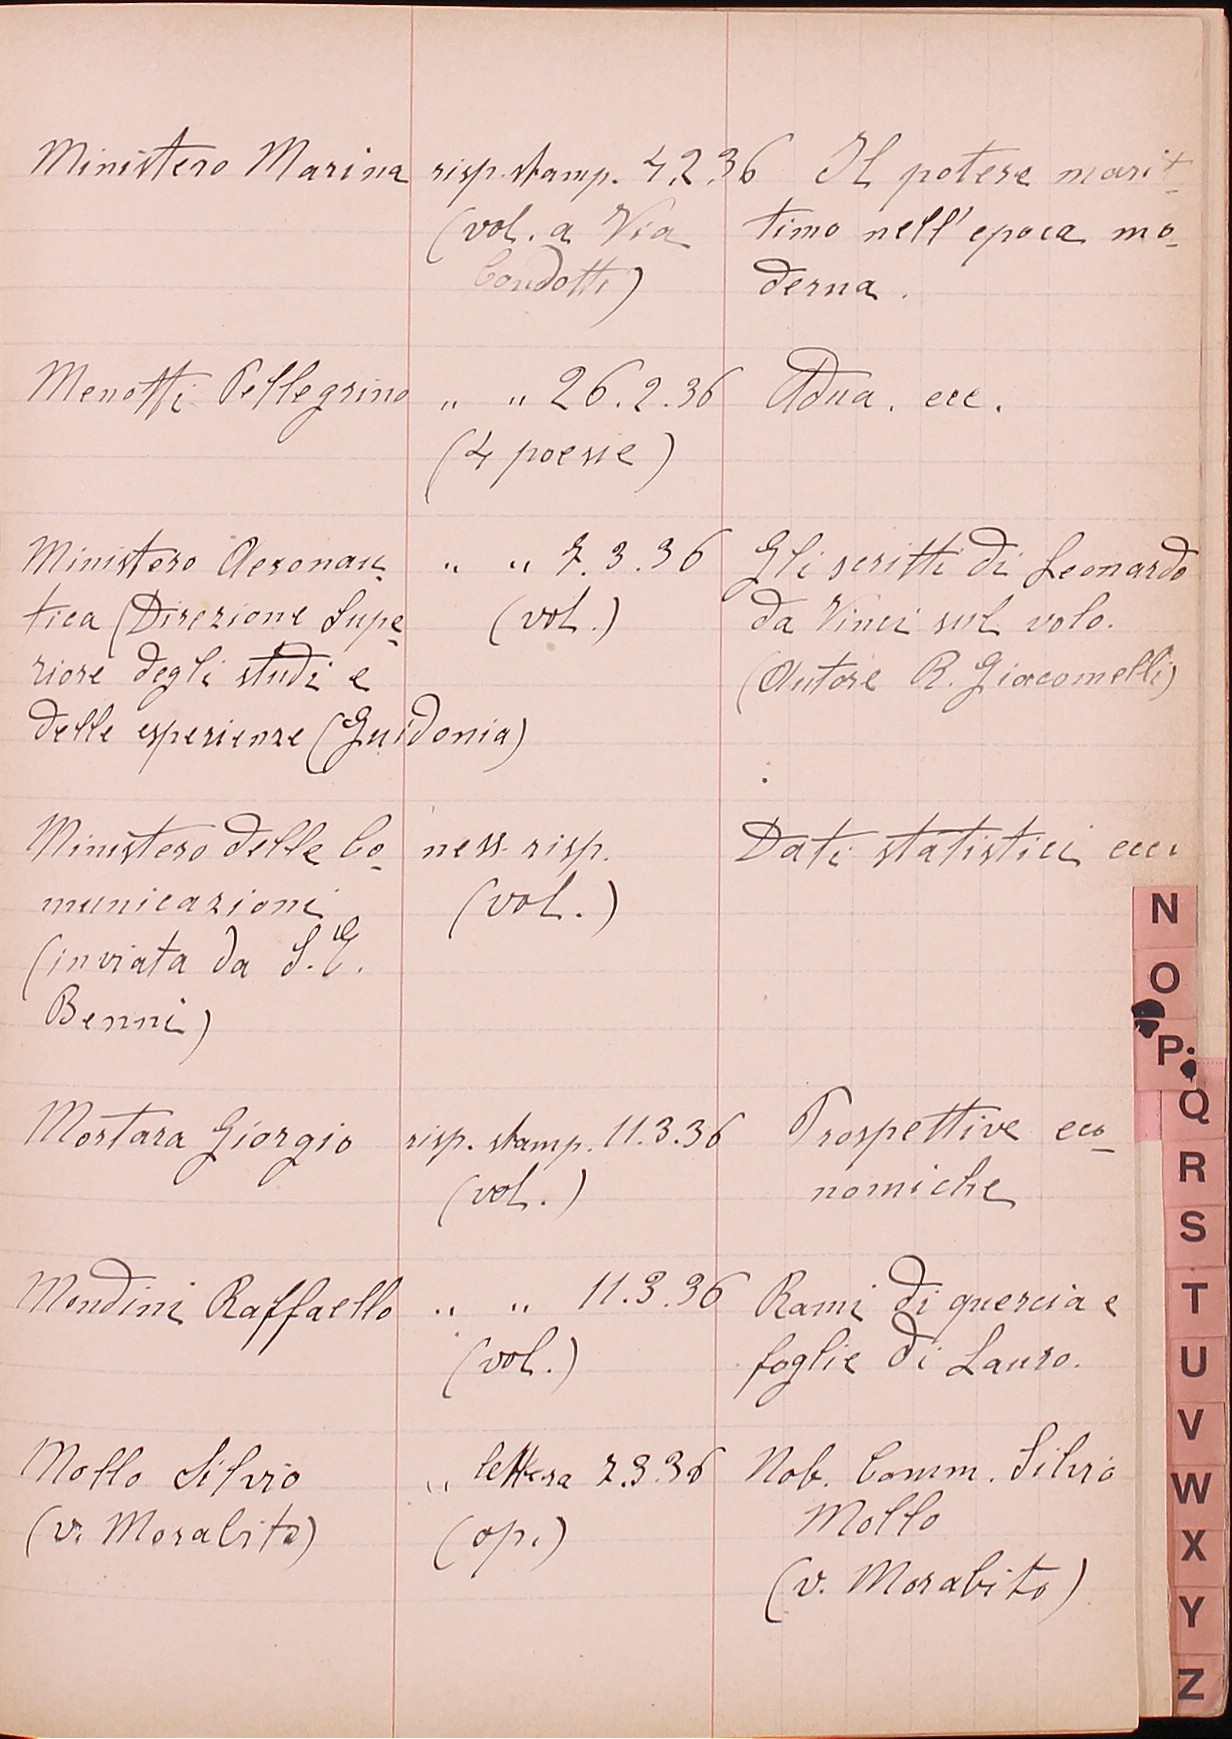 Ministero Marina risp. stamp. 4.2.36 Il potere marit-
(vol. a Via timo nell'epoca mo-
Condotti) derna.
Menotti Pellegrino „ „ 26.2.36 Adua. ecc.
(4 poesie)
Ministero Aeronau- „ „ 7.3.36 Gli scritti di Leonardo
tica (Direzione Supe- (vol.) da Vinci sul volo.
riore degli studi e (Autore R. Giacomelli)
delle esperienze (Guidonia)
Ministero delle Co- ness. risp. Dati statistici ecc.
municazioni (vol.)
(inviata da S.E.
Benni)
Mortara Giorgio risp. stamp. 11.3.36 Prospettive eco-
(vol.) nomiche
Mondini Raffaello „ „ 11.3.36 Rami di quercia e
(vol.) foglie di Lauro.
Mollo Silvio „ lettera 7.3.36 Nob. Comm. Silvio
(v. Morabito) (op.) Mollo
(v. Morabito)
N
O
P
Q
R
S
T
U
V
W
X
Y
Z